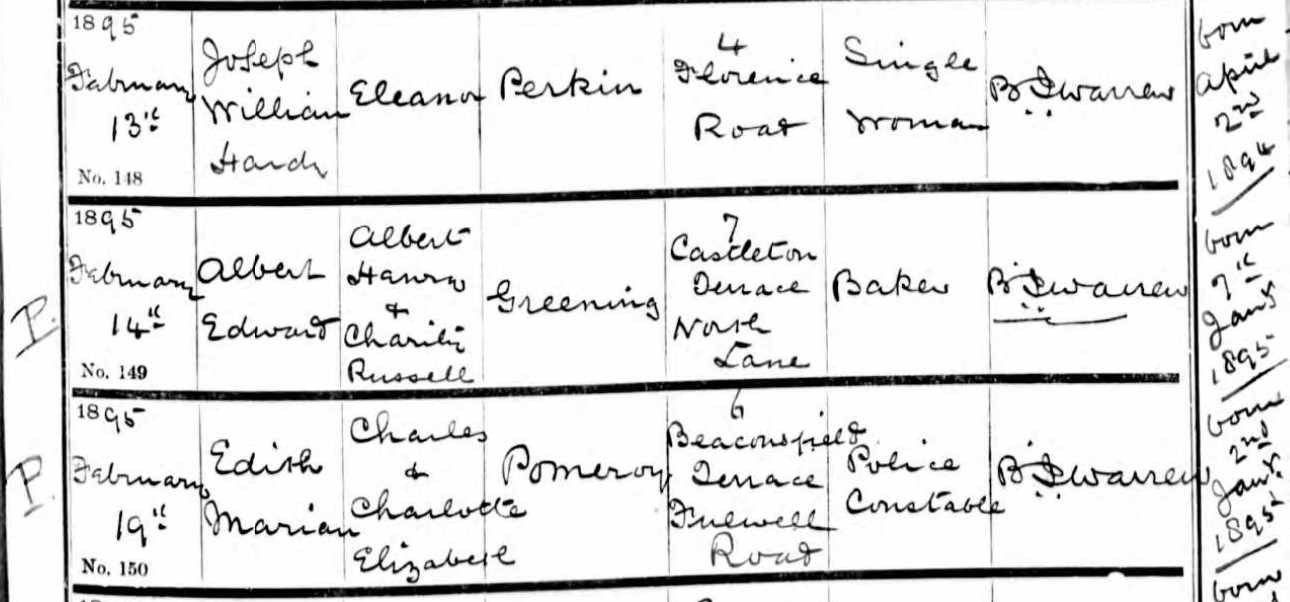 1895
February
13th
No. 148
Joseph
William
Hardy
Eleanor
Perkin
4
Florence
Road
Single
Woman
born
April
2nd
1894
1895
February
14th
No. 149
P.
Albert
Edward
Albert
Henry
&
Charity
Russell
Greening
7
Castleton
Terrace
North
Lane
Baker
born
7th
Jany
1895
1895
February
19th
No. 150
P.
Edith
Marian
Charles
&
Charlotte
Elizabeth
Pomeroy
6
Beaconsfield
Terrace
Fulwell
Road
Police
Constable
born
2nd
Jany.
1895
born